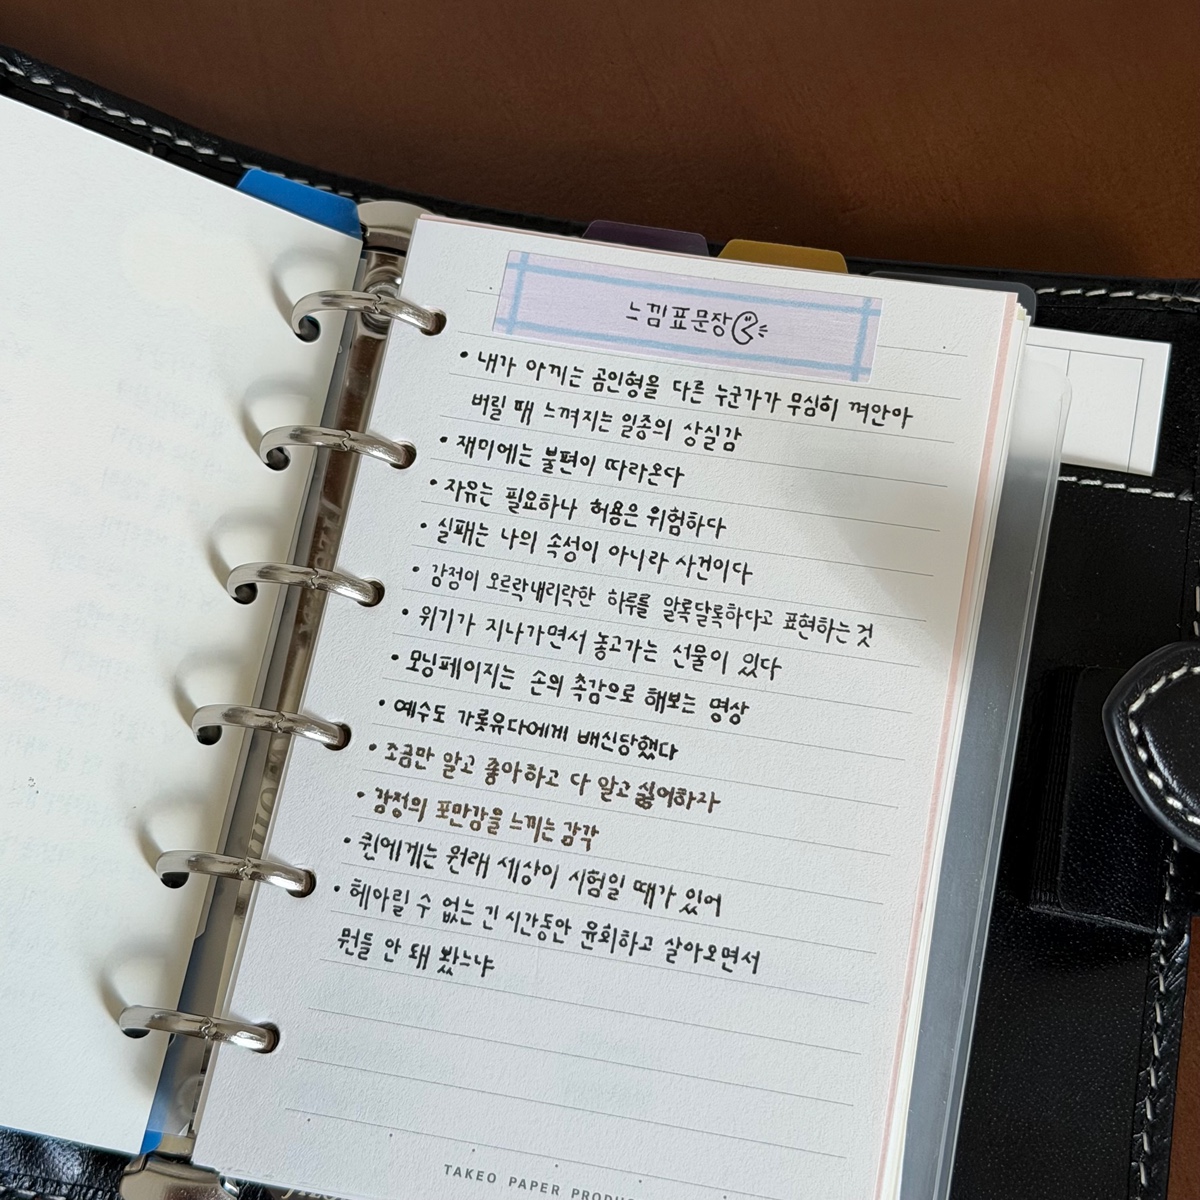 느낌표문장
• 내가 아끼는 곰인형을 다른 누군가가 무심히 껴안아
버릴 때 느껴지는 일종의 상실감
• 재미에는 불편이 따라온다
• 자유는 필요하나 허용은 위험하다
• 실패는 나의 속성이 아니라 사건이다
• 감정이 오르락내리락한 하루를 알록달록하다고 표현하는 것
• 위기가 지나가면서 놓고가는 선물이 있다
• 모닝페이지는 손의 촉감으로 해보는 명상
• 예수도 가롯유다에게 배신당했다
• 조금만 알고 좋아하고 다 알고 싫어하자
• 감정의 포만감을 느끼는 감각
• 퀸에게는 원래 세상이 시험일 때가 있어
• 헤아릴 수 없는 긴 시간동안 윤회하고 살아오면서
뭔들 안 돼 봤느냐
TAKEO PAPER PRODU